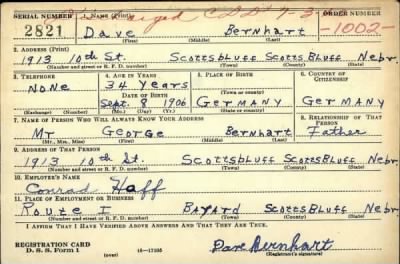 SERIAL NUMBER 1. NAME (Print) ORDER NUMBER
2821 Dave Bernhart -1002-
(First) (Middle) (Last)
2. ADDRESS (Print)
1913 10th St. Scottsbluff ScottsBluff Nebr.
(Number and street or R. F. D. number) (Town) (County) (State)
3. TELEPHONE 4. AGE IN YEARS 5. PLACE OF BIRTH 6. COUNTRY OF CITIZENSHIP
None 34 Years Germany Germany
DATE OF BIRTH (Town or county)
Sept. 8 1906
(Exchange) (Number) (Mo.) (Day) (Yr.) (State or country)
7. NAME OF PERSON WHO WILL ALWAYS KNOW YOUR ADDRESS 8. RELATIONSHIP OF THAT PERSON
Mr George Bernhart Father
(Mr., Mrs., Miss) (First) (Middle) (Last)
9. ADDRESS OF THAT PERSON
1913 10th St. Scottsbluff ScottsBluff Nebr.
(Number and street or R. F. D. number) (Town) (County) (State)
10. EMPLOYER'S NAME
Conrad Haff
11. PLACE OF EMPLOYMENT OR BUSINESS
Route I Bayard ScottsBluff Nebr.
(Number and street or R. F. D. number) (Town) (County) (State)
I AFFIRM THAT I HAVE VERIFIED ABOVE ANSWERS AND THAT THEY ARE TRUE.
REGISTRATION CARD
D. S. S. Form 1 (over) 16-17105 Dave Bernhart
(Registrant's signature)